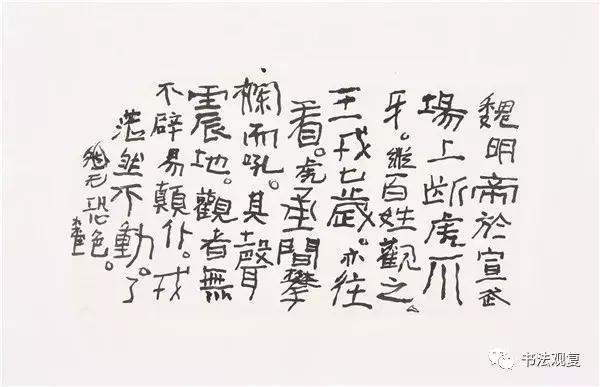 魏明帝於宣武
場上断虎爪
牙。縱百姓觀之。
王戎七歲。亦往
看。虎承間攀
欄而吼。其聲
震地。觀者無
不辟易顛仆。戎
湛然不動。了
無恐色。
书法观复